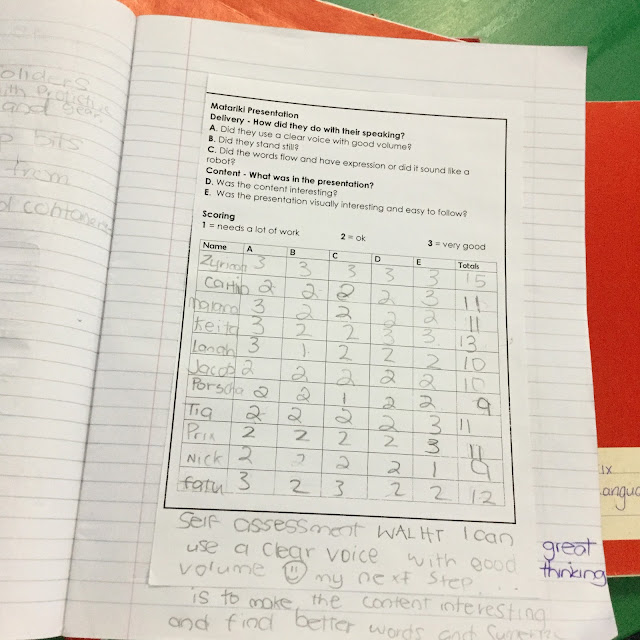 oliders
ith
and
bits
from
Matariki Presentation
Delivery - How did they do with their speaking?
A. Did they use a clear voice with good volume?
B. Did they stand still?
C. Did the words flow and have expression or did it sound like a
robot?
Content - What was in the presentation?
D. Was the content interesting?
E. Was the presentation visually interesting and easy to follow?
Scoring
1 = needs a lot of work 2 = ok 3 = very good
Name A B C D E Totals
3 3 3 3 3 15
2 2 2 2 3 11
3 2 2 2 2 11
Keita 3 2 2 3 3 13
Lanah 3 1 2 2 2 10
Jacob 2 2 2 2 2 10
Porscha 2 2 1 2 2 9
Tia 2 2 2 2 3 11
Prix 2 2 2 2 3 11
Nick 2 2 2 2 1 9
3 2 3 2 2 12
Self assessment WALHT I can
use a clear voice with good
volume my next step....
is to make the content interesting
and find better words and
great
thinking
ix
angua